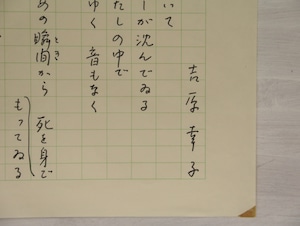 吉原幸子
いて
しが沈んでゐる
たしの中で
ゆく 音もなく
めの瞬間から 死を身で
とき
もってゐる